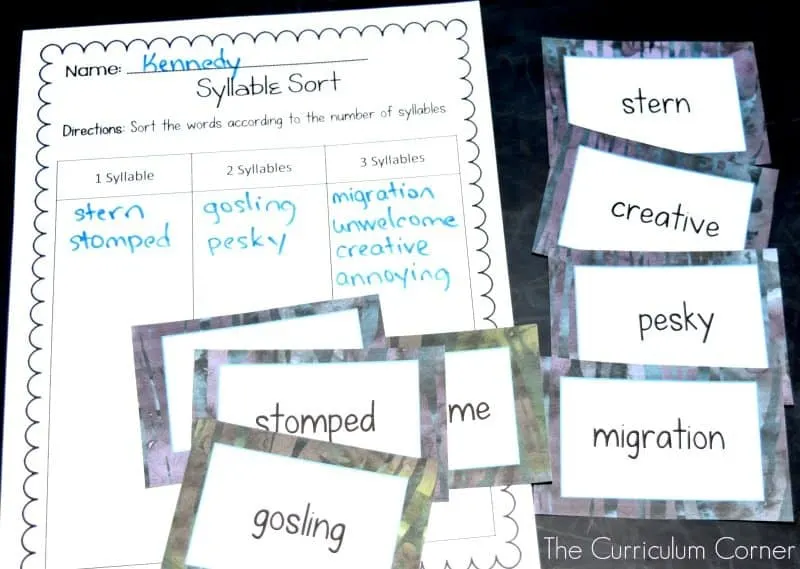 Name: Kennedy
Syllable Sort
Directions: Sort the words according to the number of syllables
1 Syllable 2 Syllables 3 Syllables
stern gosling migration
stomped pesky unwelcome
creative
annoying
stern
creative
pesky
migration
stomped
me
gosling
The Curriculum Corner